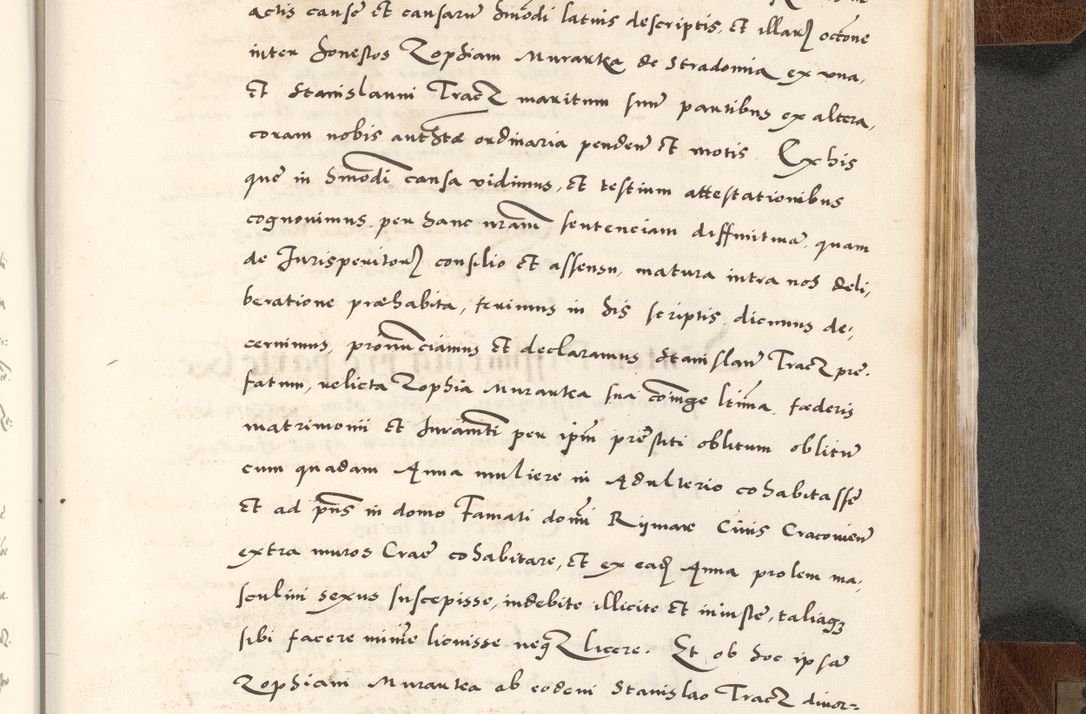 actis causę et causarum hmōdi latius descriptis, et illarꝫ occōne
inter honestos Zophiam Murarka de Stradomia ex una,
et Stanislaum Tracz maritum suum partibus ex altera,
coram nobis authtæ ordinaria penden et motis Ex his
que in hmōdi causa vidimus, et testium attestationibus
cognovimus, per hanc nrām sentenciam diffinitivā, quam
de Jurisperitorꝫ consilio et assensu, matura intra nos deli,
beratione præhabita, ferimus in his scriptis, dicimus de,
cernimus, pronunciamus et declaramus Stanislaū Tracz pre,
fatum, relicta Zophia Murarka sua coniuge ltīma, fæderis
matrimonii et Juramti per ipm prestiti oblitum oblitū
cum quadam Anna muliere in Adulterio cohabitasse
et ad pñs in domo Famati domi Rijmarz Civis Cracovien
extra muros Crac cohabitare, et ex eadꝫ Anna prolem ma,
sculini sexus suscepisse, indebite illicite et iniuste, taliaqꝫ
sibi facere minime licuisse neqꝫ licere. Et ob hoc ipsā
Zophiam Murarka ab eodem Stanislao Tracz divor=